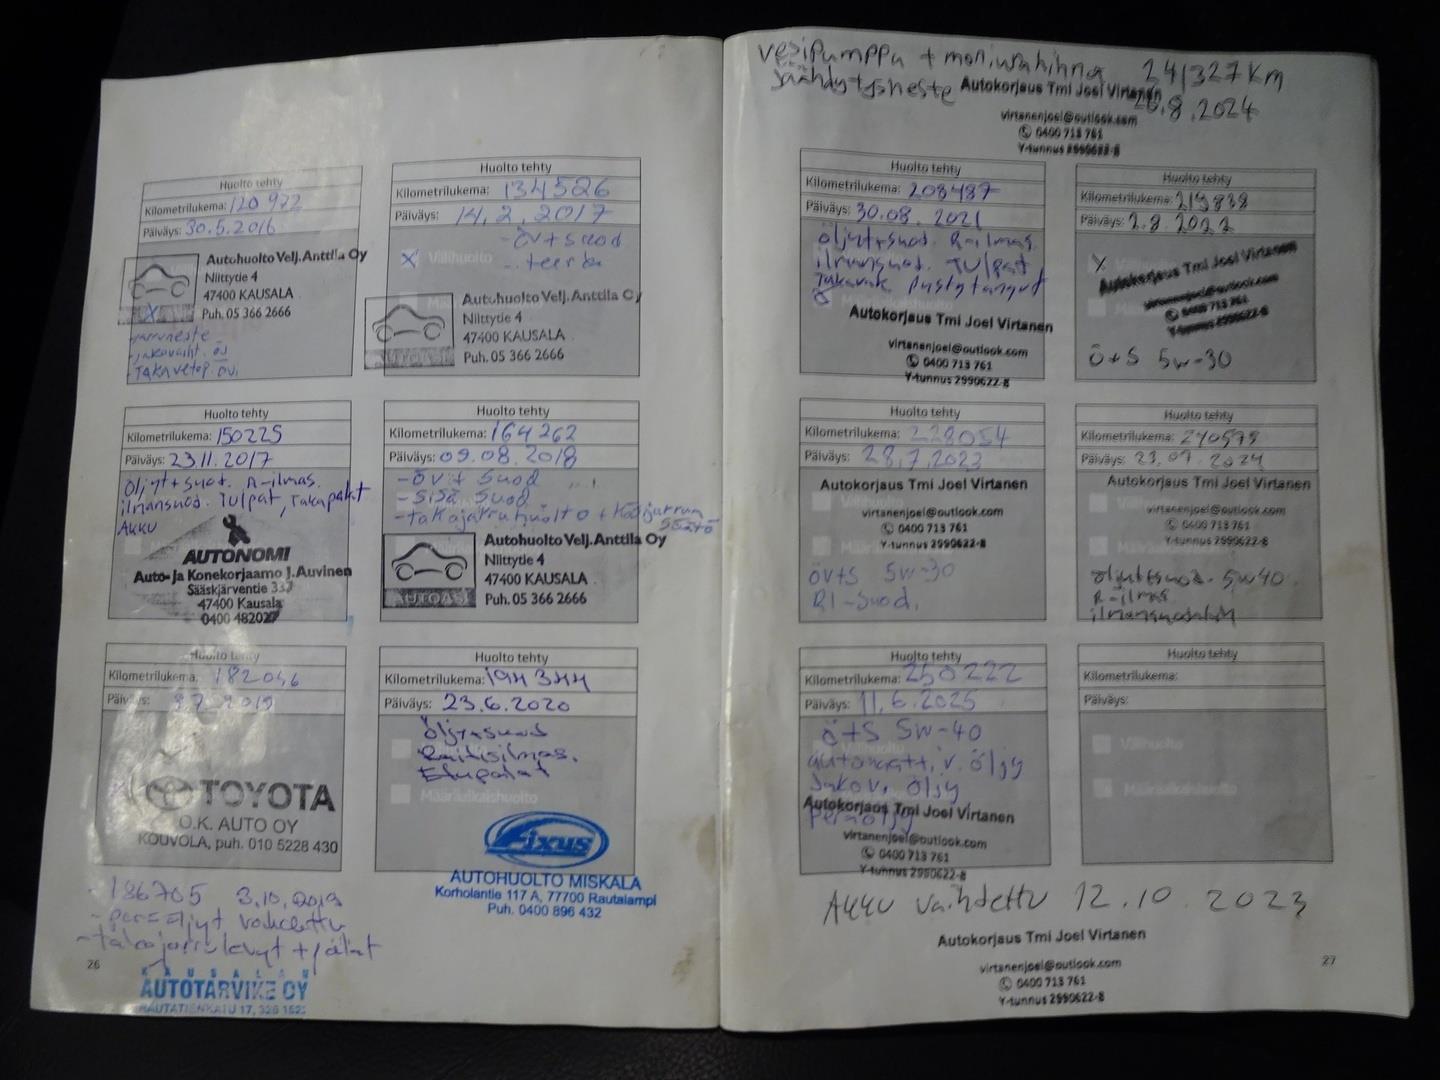 Huolto tehty
Kilometrilukema: 120 972
Päiväys: 30.5.2016
Autohuolto Velj.Anttila Oy
Niittytie 4
47400 KAUSALA
Puh. 05 366 2666
X
-jarruneste
-jakovaiht. öljy
-TAKAvetop. öv.
Huolto tehty
Kilometrilukema: 134526
Päiväys: 14.2.2017
- öv+suod
X Välihuolto
Autohuolto Velj.Anttila Oy
Niittytie 4
47400 KAUSALA
Puh. 05 366 2666
Huolto tehty
Kilometrilukema: 150225
Päiväys: 23.11.2017
Öljyt+suod. R-ilmas.
ilmansuod. Tulpat, Takapalat
AKKU
AUTONOMI
Auto- ja Konekorjaamo J.Auvinen
Sääskjärventie 337
47400 Kausala
0400 482027
Huolto tehty
Kilometrilukema: 164262
Päiväys: 09.08.2018
- öv+ suod
- sisä suod
- takajarruhuolto + käsijarrun
säätö
Autohuolto Velj.Anttila Oy
Niittytie 4
47400 KAUSALA
Puh. 05 366 2666
AUTOASI
Huolto tehty
Kilometrilukema: 182046
Päiväys: 9.7.2019
TOYOTA
O.K. AUTO OY
KOUVOLA, puh. 010 5228 430
Huolto tehty
Kilometrilukema: 194344
Päiväys: 23.6.2020
Öljy+suod
Raitisilmas.
Etupalat
Määräaikaishuolto
Fixus
AUTOHUOLTO MISKALA
Korholantie 117 A, 77700 Rautalampi
Puh. 0400 896 432
- 186705 3.10.2019
- peräöljyt vaihdettu
- takajarrulevyt + palat
26
KAUSALAN
AUTOTARVIKE OY
RAUTATIENKATU 17,
vesipumppu + moniurahihna 241327 km
jäähdytysneste 26.8.2024
Autokorjaus Tmi Joel Virtanen
virtanenjoel@outlook.com
0400 713 761
Y-tunnus 2990622-8
Huolto tehty
Kilometrilukema: 208487
Päiväys: 30.08.2021
Öljyt+suod. R-ilmas.
ilmansuod. Tulpat
Takavak. pystytangot
Autokorjaus Tmi Joel Virtanen
virtanenjoel@outlook.com
0400 713 761
Y-tunnus 2990622-8
Huolto tehty
Kilometrilukema: 219838
Päiväys: 2.8.2022
X
Autokorjaus Tmi Joel Virtanen
virtanenjoel@outlook.com
0400 713 761
Y-tunnus 2990622-8
Ö+S 5w-30
Huolto tehty
Kilometrilukema: 228054
Päiväys: 28.7.2023
Autokorjaus Tmi Joel Virtanen
virtanenjoel@outlook.com
0400 713 761
Y-tunnus 2990622-8
ÖV+S 5W-30
RI-suod.
Huolto tehty
Kilometrilukema: 240579
Päiväys: 23.07.2024
Autokorjaus Tmi Joel Virtanen
virtanenjoel@outlook.com
0400 713 761
Y-tunnus 2990622-8
öljyt+suod. 5w40
R-ilmas
ilmansuodatin
Huolto tehty
Kilometrilukema: 250222
Päiväys: 11.6.2025
ö+S 5W-40
automaatti.v. öljy
Jakov. öljy
peräöljy
Autokorjaus Tmi Joel Virtanen
virtanenjoel@outlook.com
0400 713 761
Y-tunnus 2990622-8
Huolto tehty
Kilometrilukema:
Päiväys:
Välihuolto
Määräaikaishuolto
AKKU vaihdettu 12.10.2023
Autokorjaus Tmi Joel Virtanen
virtanenjoel@outlook.com
0400 713 761
Y-tunnus 2990622-8
27